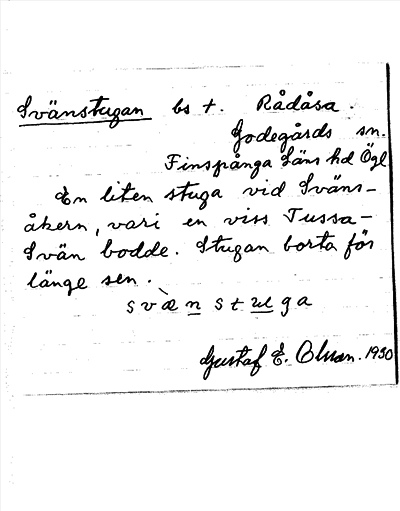 Svänstugan bs t. Rådåsa.
Godegårds sn.
Finspånga Läns hd Ögl
En liten stuga vid Sväns-
åkern, vari en viss Tussa-
Svän bodde. Stugan borta för
länge sen.
svὲnstuga
Gustaf E. Olsson. 1930